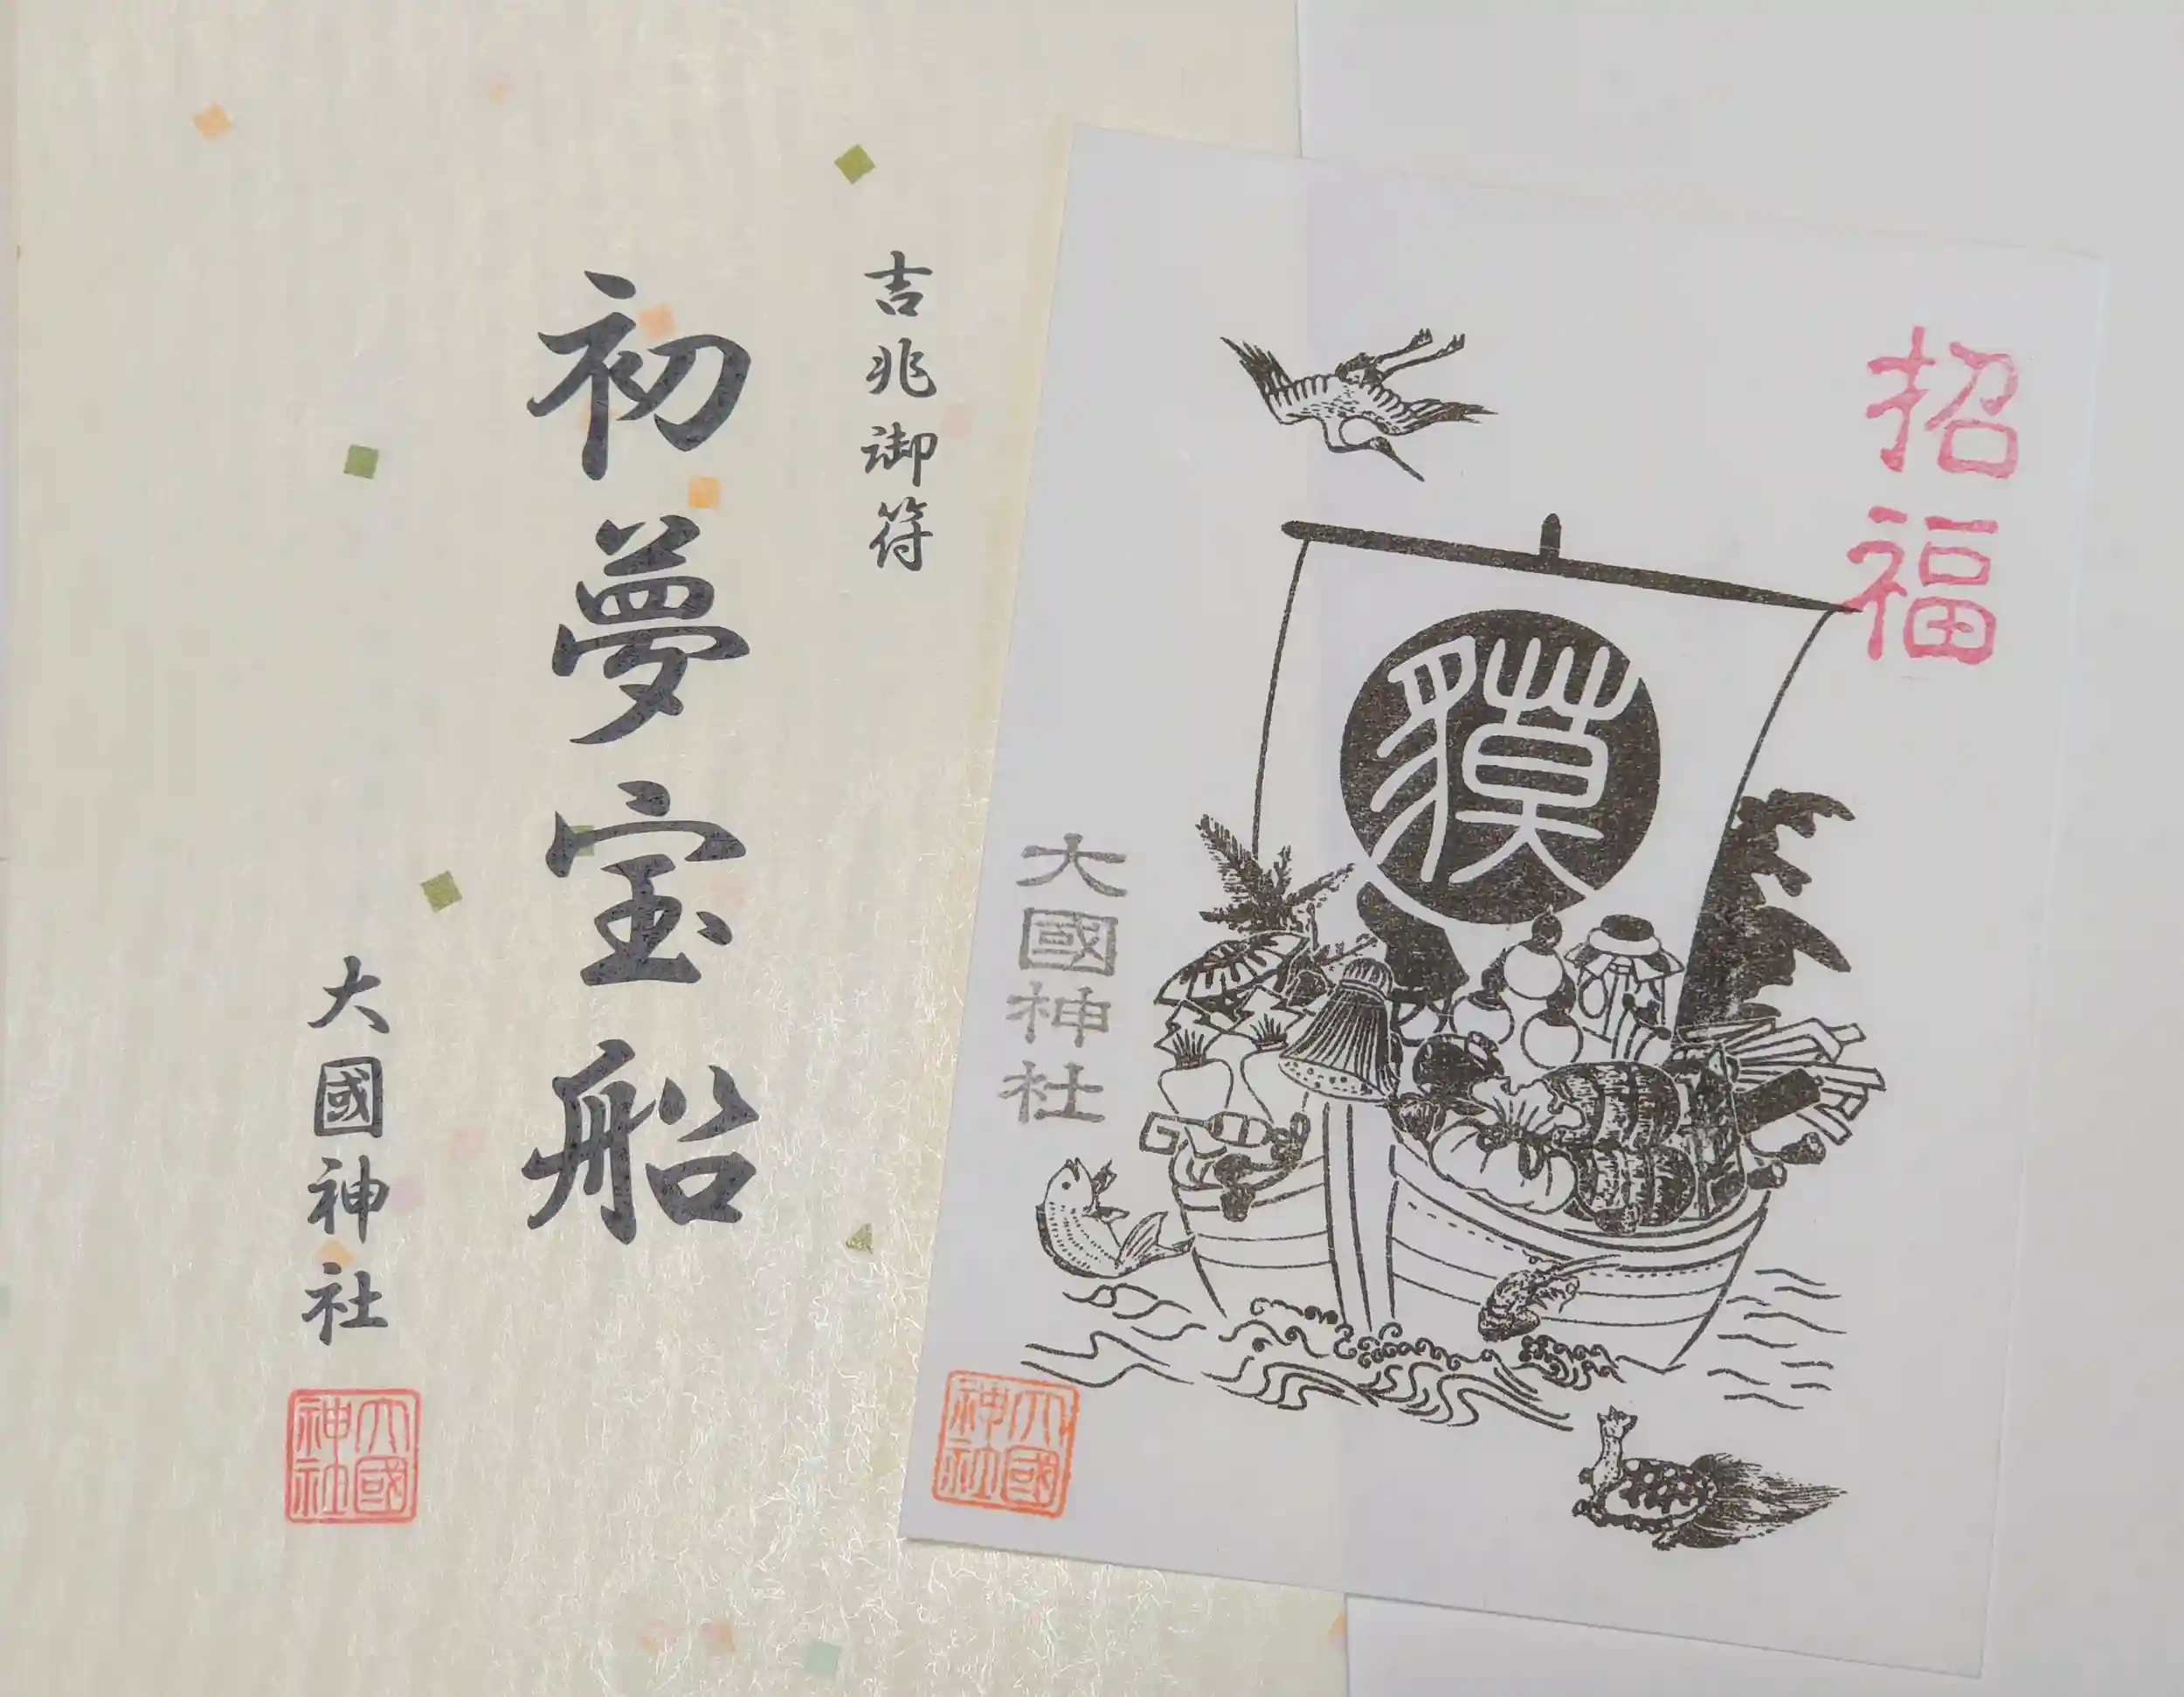 吉兆御符
初夢宝船
大國神社
大國神社
招福
獏
大國神社
大國神社